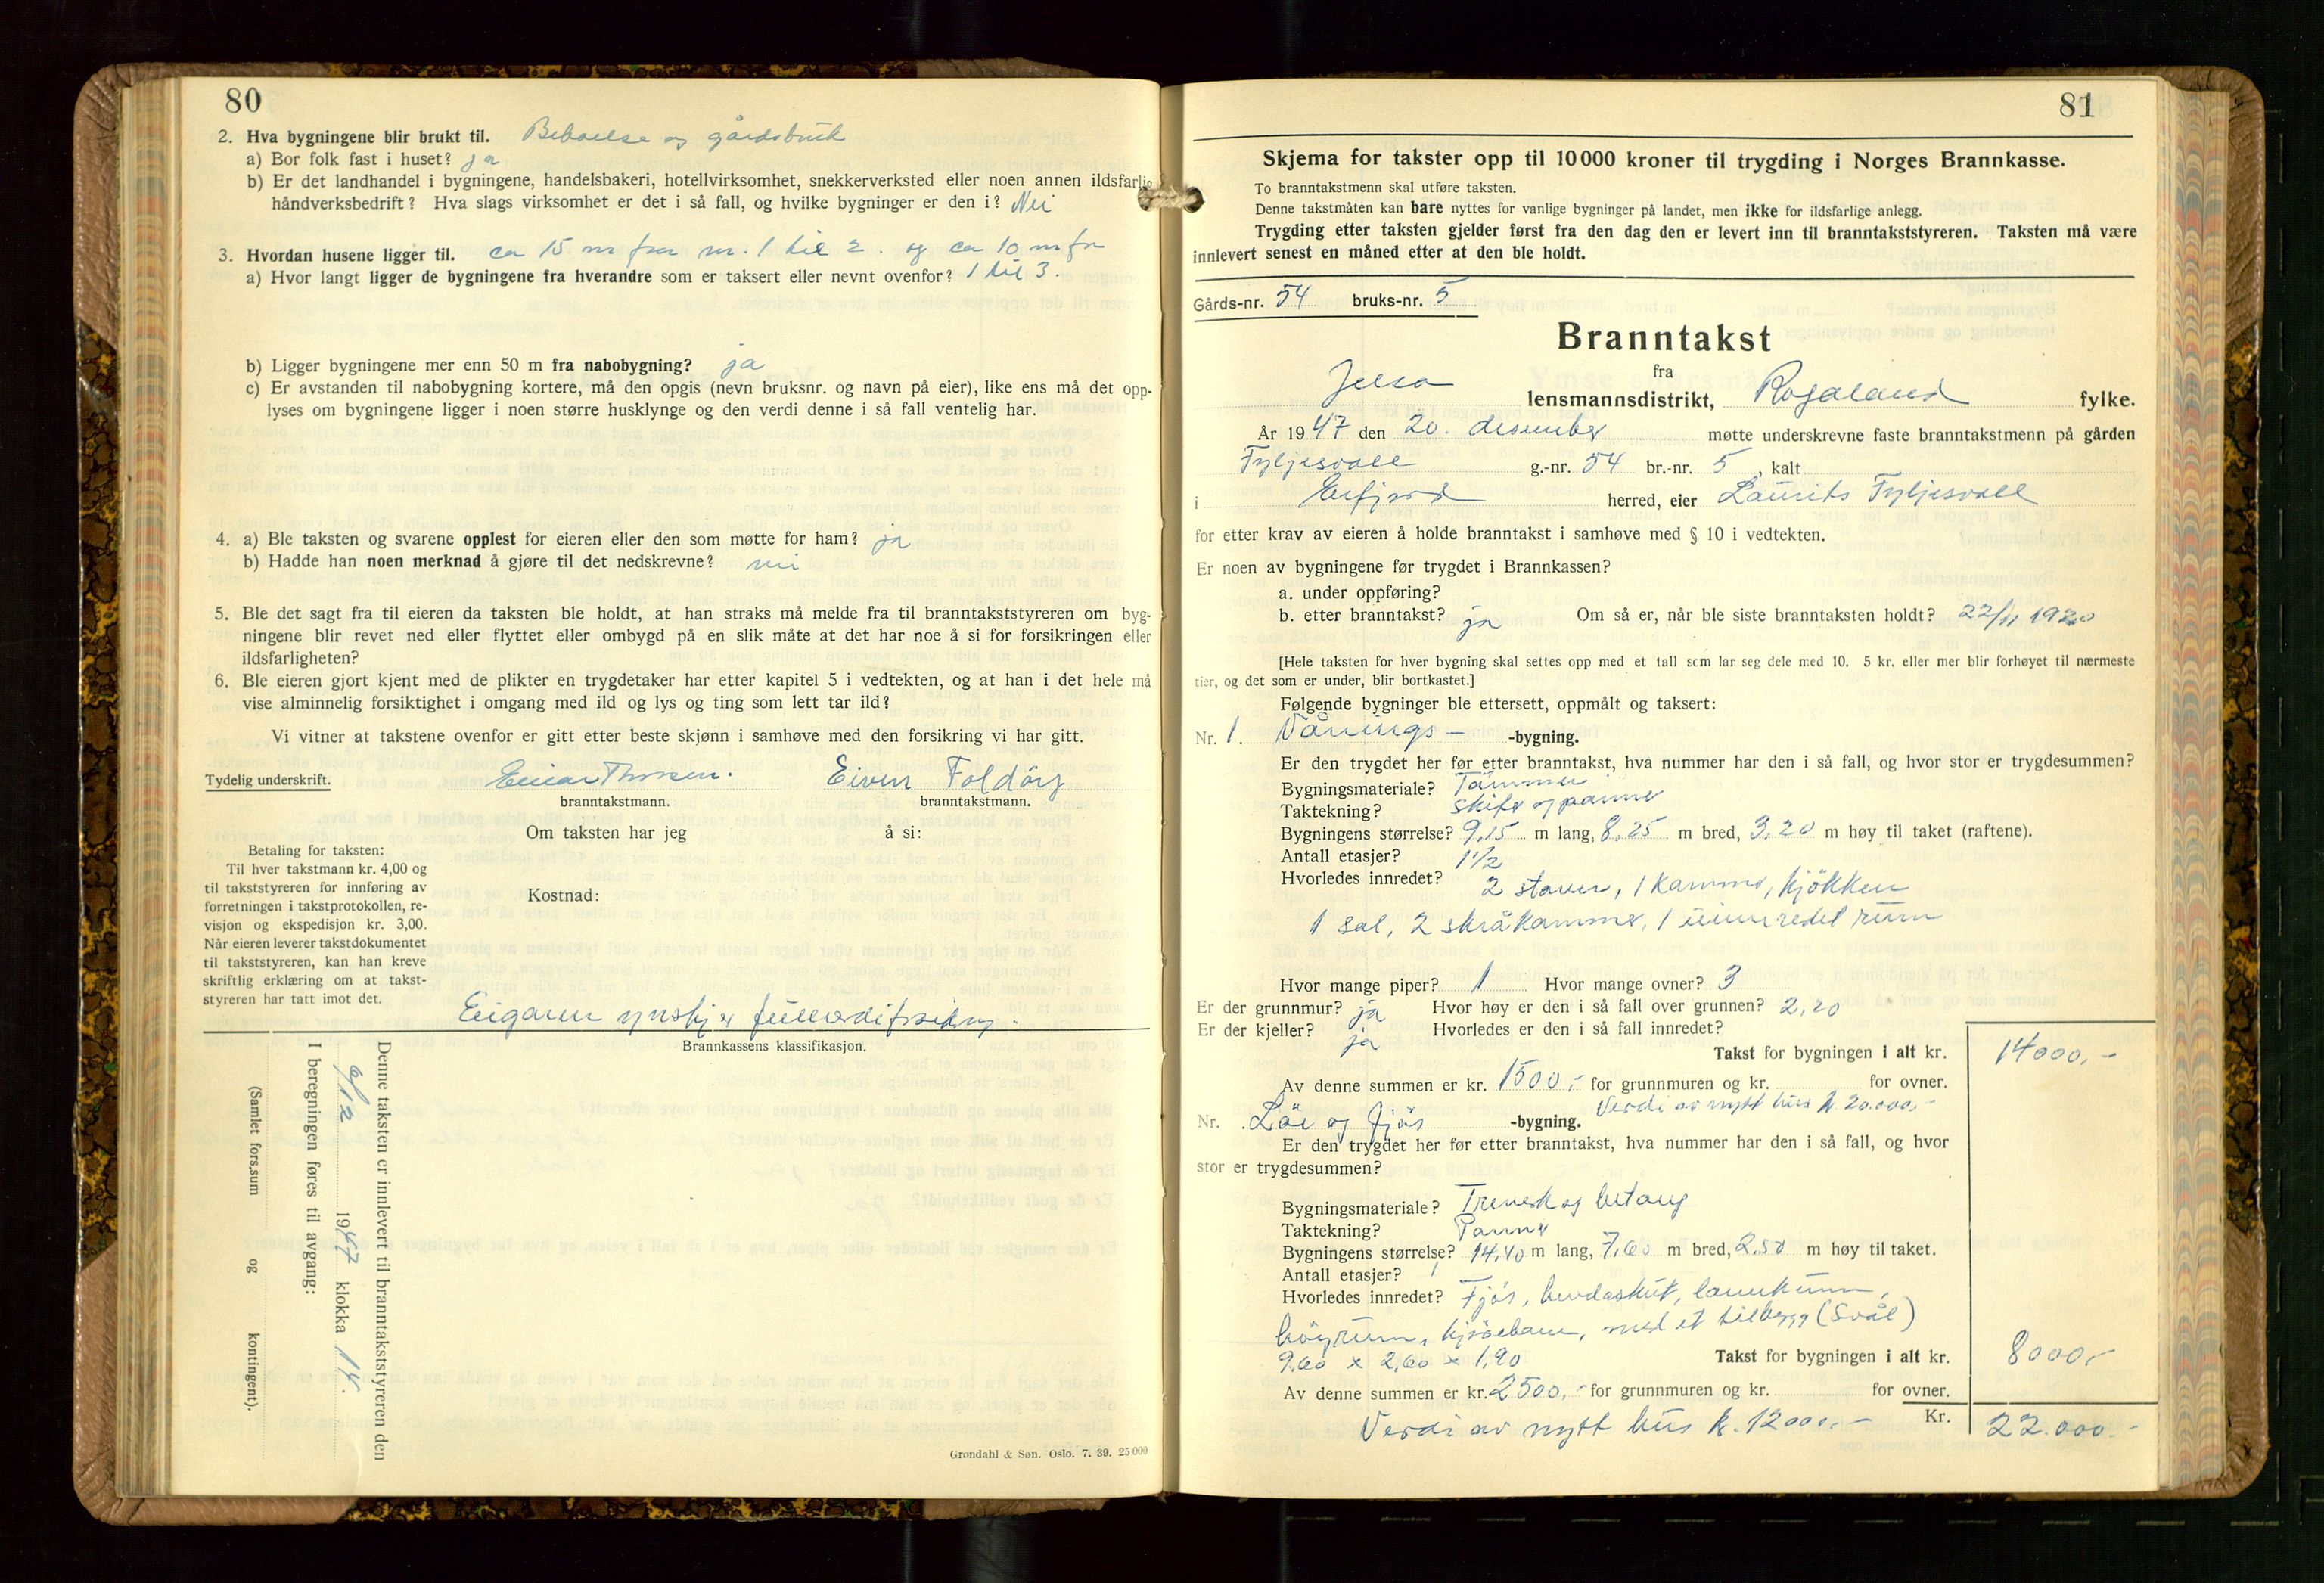 80
2. Hva bygningene blir brukt til. Beboelse og gårdsbruk
a) Bor folk fast i huset? ja
b) Er det landhandel i bygningene, handelsbakeri, hotellvirksomhet, snekkerverksted eller noen annen ildsfarlig
håndverksbedrift? Hva slags virksomhet er det i så fall, og hvilke bygninger er den i? Nei
3. Hvordan husene ligger til. ca 15 m fra nr. 1 til 2. og ca 10 m fra
a) Hvor langt ligger de bygningene fra hverandre som er taksert eller nevnt ovenfor? 1 til 3.
b) Ligger bygningene mer enn 50 m fra nabobygning? ja
c) Er avstanden til nabobygning kortere, må den opgis (nevn bruksnr. og navn på eier), like ens må det opp-
lyses om bygningene ligger i noen større husklynge og den verdi denne i så fall ventelig har.
4. a) Ble taksten og svarene opplest for eieren eller den som møtte for ham? ja
b) Hadde han noen merknad å gjøre til det nedskrevne? nei
5. Ble det sagt fra til eieren da taksten ble holdt, at han straks må melde fra til branntakststyreren om byg-
ningene blir revet ned eller flyttet eller ombygd på en slik måte at det har noe å si for forsikringen eller
ildsfarligheten?
6. Ble eieren gjort kjent med de plikter en trygdetaker har etter kapitel 5 i vedtekten, og at han i det hele må
vise alminnelig forsiktighet i omgang med ild og lys og ting som lett tar ild?
Vi vitner at takstene ovenfor er gitt etter beste skjønn i samhøve med den forsikring vi har gitt.
Tydelig underskrift. Einar Thorsen. Eivin Foldöy
branntakstmann. branntakstmann.
Om taksten har jeg å si:
Betaling for taksten:
Til hver takstmann kr. 4,00 og
til takststyreren for innføring av
forretningen i takstprotokollen, re-
visjon og ekspedisjon kr. 3,00.
Når eieren leverer takstdokumentet
til takststyreren, kan han kreve
skriftlig erklæring om at takst-
styreren har tatt imot det.
Kostnad:
Eigaren ynskjer fullverdiforsikring.
Brannkassens klassifikasjon.
Denne taksten er innlevert til branntakststyreren den
1947 klokka 14.
I beregningen føres til avgang:
(Samlet fors.sum og kontingent).
Grøndahl & Søn. Oslo. 7. 39. 25000
81
Skjema for takster opp til 10000 kroner til trygding i Norges Brannkasse.
To branntakstmenn skal utføre taksten.
Denne takstmåten kan bare nyttes for vanlige bygninger på landet, men ikke for ildsfarlige anlegg.
Trygding etter taksten gjelder først fra den dag den er levert inn til branntakststyreren. Taksten må være
innlevert senest en måned etter at den ble holdt.
Gårds-nr. 54 bruks-nr. 5
Branntakst
fra
Jelsa lensmannsdistrikt, Rogaland fylke.
År 1947 den 20. desember møtte underskrevne faste branntakstmenn på gården
Fyljesvoll g.-nr. 54 br.-nr. 5, kalt
i Erfjord herred, eier Laurits Fyljesvoll
for etter krav av eieren å holde branntakst i samhøve med § 10 i vedtekten.
Er noen av bygningene før trygdet i Brannkassen?
a. under oppføring?
b. etter branntakst? ja Om så er, når ble siste branntaksten holdt? 22/11 1920
[Hele taksten for hver bygning skal settes opp med et tall som lar seg dele med 10. 5 kr. eller mer blir forhøyet til nærmeste
tier, og det som er under, blir bortkastet.]
Følgende bygninger ble ettersett, oppmålt og taksert:
Nr. 1. Vånings- -bygning.
Er den trygdet her før etter branntakst, hva nummer har den i så fall, og hvor stor er trygdesummen?
Bygningsmateriale? Tømmer
Taktekning? skifer og panner
Bygningens størrelse? 9,15 m lang, 8,25 m bred, 3,20 m høy til taket (raftene).
Antall etasjer? 1 1/2
Hvorledes innredet? 2 stover, 1 kammer, kjökken
1 sal, 2 skråkammer, 1 uinnredet rum
Hvor mange piper? 1 Hvor mange ovner? 3
Er der grunnmur? ja Hvor høy er den i så fall over grunnen? 2,20
Er der kjeller? ja Hvorledes er den i så fall innredet?
Takst for bygningen i alt kr. 14000,-
Av denne summen er kr. 1500,- for grunnmuren og kr. for ovner.
Verdi av nytt hus kr. 20.000,-
Nr. Löe og fjös -bygning.
Er den trygdet her før etter branntakst, hva nummer har den i så fall, og hvor
stor er trygdesummen?
Bygningsmateriale? Treverk og betong
Taktekning? Panner
Bygningens størrelse? 14,40 m lang, 7,60 m bred, 2,50 m høy til taket.
Antall etasjer? 1
Hvorledes innredet? Fjös,
höyrum, med et tilbygg (Svål)
9,60 x 2,60 x 1,90 Takst for bygningen i alt kr. 8000,-
Av denne summen er kr. 2500,- for grunnmuren og kr. for ovner.
Kr. 22.000.-
Verdi av nytt hus kr. 12000.-